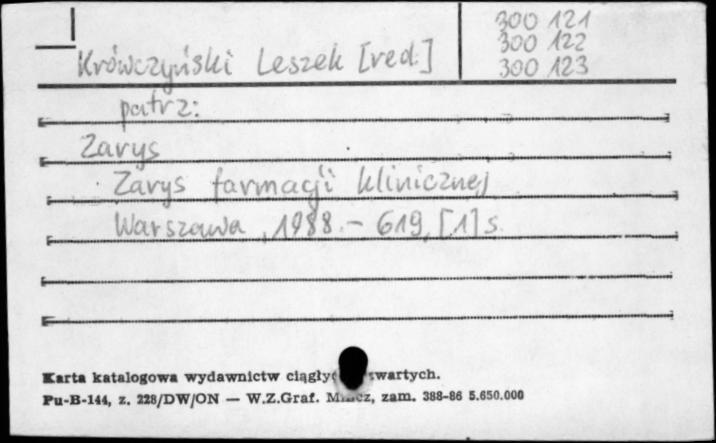 300 121
300 122
Krówczyński Leszek [red.] 300 123
patrz:
Zarys
Zarys farmacji klinicznej
Warszawa, 1988. - 619, [1] s.
Karta katalogowa wydawnictw zwartych.
Pu-B-144, z. 228/DW/ON — W.Z.Graf. zam. 388-86 5.650.000